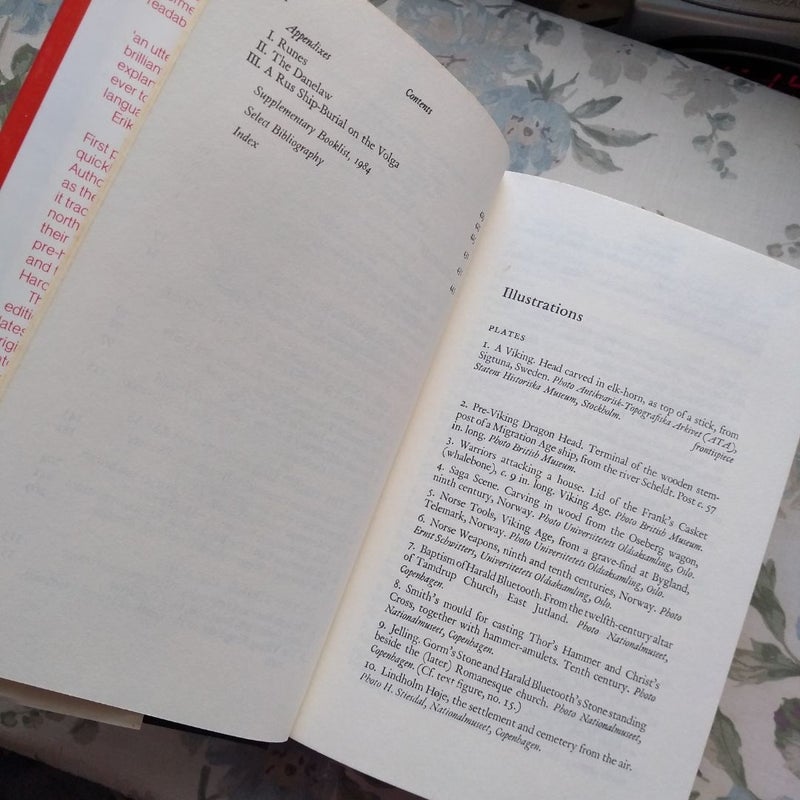 readab
'an utte
brillian
explan
ever to
langua
Erik
First p
quick
Autho
as the
it trac
north
their
pre-h
and f
Haro
Th
editi
lates
origi
Contents
Appendixes
I. Runes
II. The Danelaw
III. A Rus Ship-Burial on the Volga
Supplementary Booklist, 1984
Select Bibliography
Index
Illustrations
PLATES
1. A Viking. Head carved in elk-horn, as top of a stick, from
Sigtuna, Sweden. Photo Antikvarisk-Topografiska Arkivet (ATA),
Statens Historiska Museum, Stockholm.
frontispiece
2. Pre-Viking Dragon Head. Terminal of the wooden stem-
post of a Migration Age ship, from the river Scheldt. Post c. 57
in. long. Photo British Museum.
3. Warriors attacking a house. Lid of the Frank's Casket
(whalebone), c. 9 in. long. Viking Age. Photo British Museum.
4. Saga Scene. Carving in wood from the Oseberg wagon,
ninth century, Norway. Photo Universitetets Oldsaksamling, Oslo.
5. Norse Tools, Viking Age, from a grave-find at Bygland,
Telemark, Norway. Photo Universitetets Oldsaksamling, Oslo.
6. Norse Weapons, ninth and tenth centuries, Norway. Photo
Ernst Schwitters, Universitetets Oldsaksamling, Oslo.
7. Baptism of Harald Bluetooth. From the twelfth-century altar
of Tamdrup Church, East Jutland. Photo Nationalmuseet,
Copenhagen.
8. Smith's mould for casting Thor's Hammer and Christ's
Cross, together with hammer-amulets. Tenth century. Photo
Nationalmuseet, Copenhagen.
9. Jelling. Gorm's Stone and Harald Bluetooth's Stone standing
beside the (later) Romanesque church. Photo Nationalmuseet,
Copenhagen. (Cf. text figure, no. 15.)
10. Lindholm Høje, the settlement and cemetery from the air.
Photo H. Stiesdal, Nationalmuseet, Copenhagen.